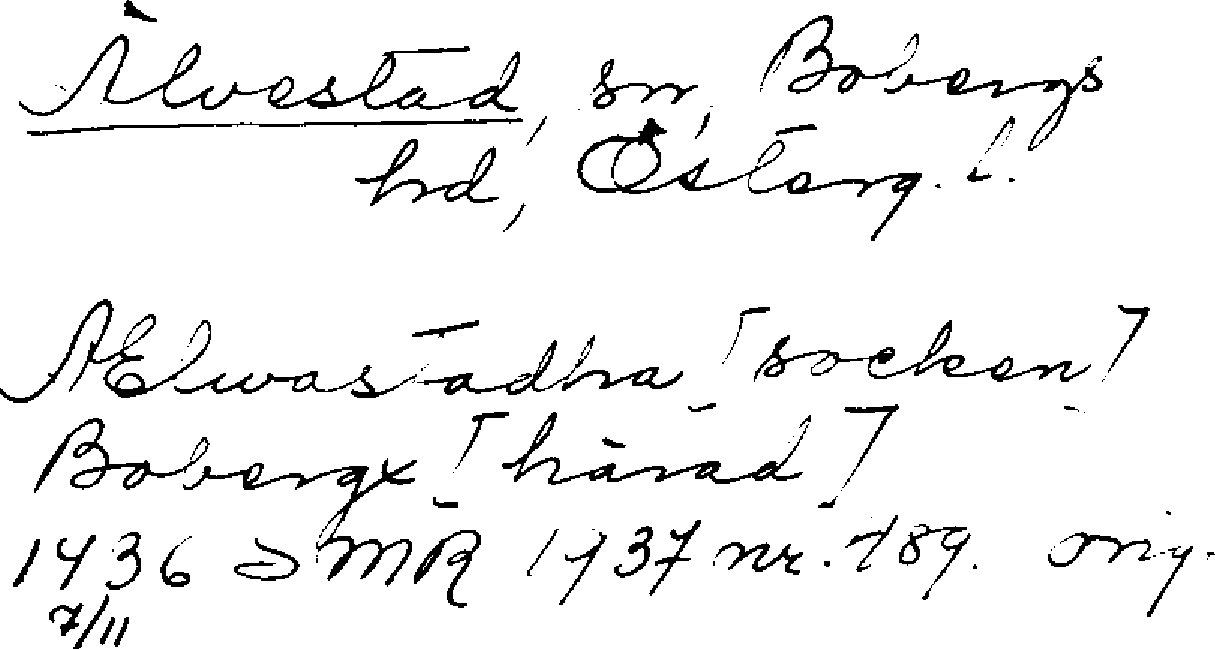 Älvestad, sn, Bobergs
hd, Österg. l.
AElwastadha [socken]
Bobergx [härad]
1436 SMR 1937 nr. 189. orig.
7/11